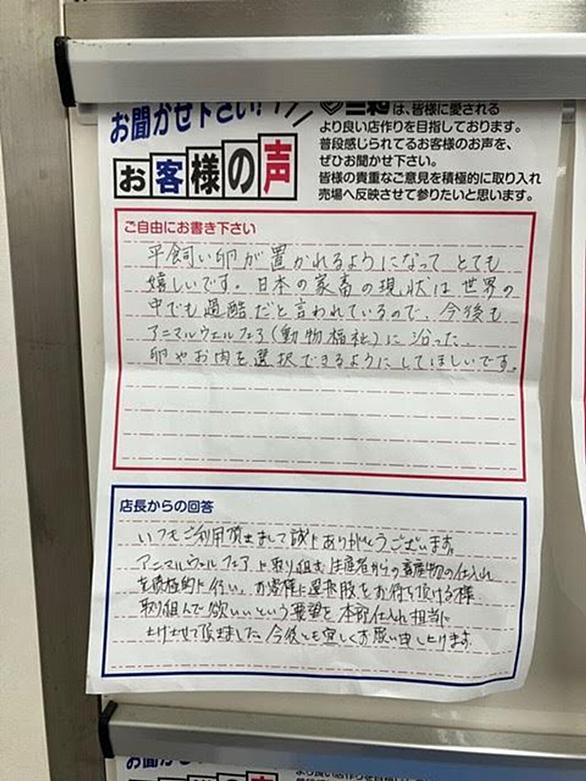 お聞かせ下さい!
お客様の声
三和は、皆様に愛される
より良い店作りを目指しております。
普段感じられてるお客様のお声を、
ぜひお聞かせ下さい。
皆様の貴重なご意見を積極的に取り入れ
売場へ反映させて参りたいと思います。
ご自由にお書き下さい
平飼い卵が置かれるようになって とても
嬉しいです。日本の家畜の現状は世界の
中でも過酷だと言われているので、今後も
アニマルウェルフェア(動物福祉)に沿った
卵やお肉を選択できるようにしてほしいです。
店長からの回答
いつもご利用頂きまして誠にありがとうございます。
アニマルウェルフェアに取り組む生産者からの畜産物の仕入れ
を積極的に行い、お客様に選択肢をお持ち頂ける様
取り組んで欲しいという要望を本部仕入れ担当に
上げさせて頂きました。今後とも宜しくお願い申し上げます。
お聞か
より良い店作りを目指しております